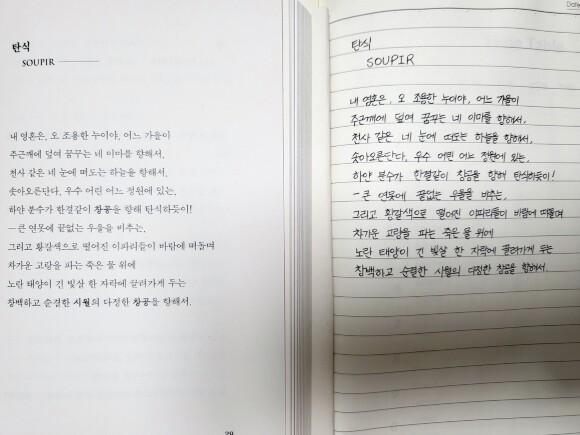 탄식
SOUPIR
내 영혼은, 오 조용한 누이야, 어느 가을이
주근깨에 덮여 꿈꾸는 네 이마를 향해서,
천사 같은 네 눈에 떠도는 하늘을 향해서,
솟아오른단다, 우수 어린 어느 정원에 있는,
하얀 분수가 한결같이 창공을 향해 탄식하듯이!
─큰 연못에 끝없는 우울을 비추는,
그리고 황갈색으로 떨어진 이파리들이 바람에 떠돌며
차가운 고랑을 파는 죽은 물 위에
노란 태양이 긴 빛살 한 자락에 끌려가게 두는
창백하고 순결한 시월의 다정한 창공을 향해서.
29
Date
탄식
SOUPIR
내 영혼은, 오 조용한 누이야, 어느 가을이
주근깨에 덮여 꿈꾸는 네 이마를 향해서,
천사 같은 네 눈에 떠도는 하늘을 향해서,
솟아오른단다, 우수 어린 어느 정원에 있는,
하얀 분수가 한결같이 창공을 향해 탄식하듯이!
─큰 연못에 끝없는 우울을 비추는,
그리고 황갈색으로 떨어진 이파리들이 바람에 떠돌며
차가운 고랑을 파는 죽은 물 위에
노란 태양이 긴 빛살 한 자락에 끌려가게 두는
창백하고 순결한 시월의 다정한 창공을 향해서.